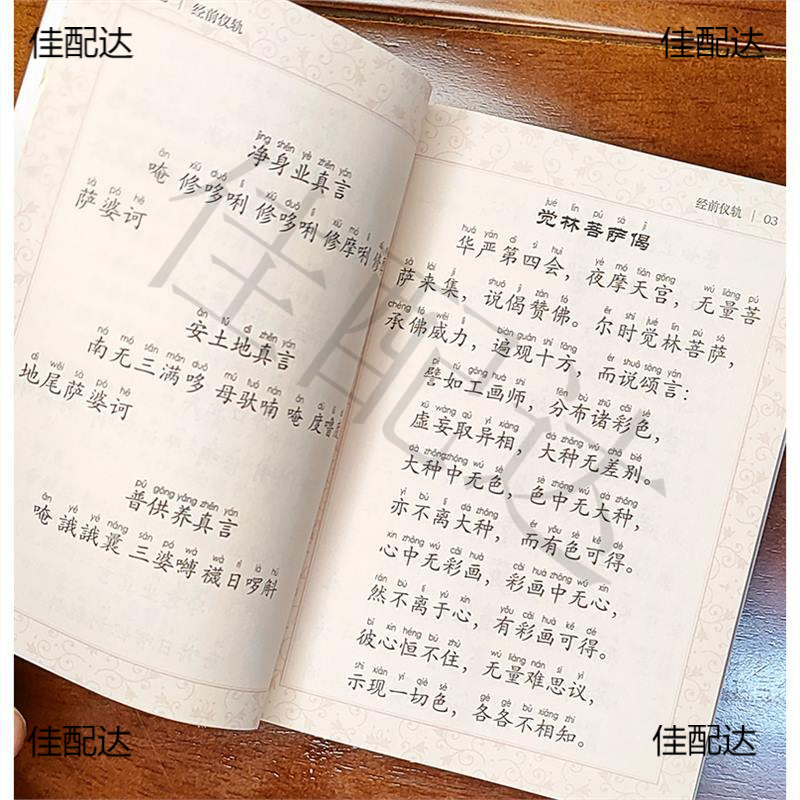 佳配达
佳配达
经前仪轨
jìng shēn yè zhēn yán
净身业真言
ǎn xiū duō lì
唵 修哆唎 修哆唎 修摩唎
sà pó hē
萨婆诃
ān tǔ dì zhēn yán
安土地真言
nā mó sān mǎn duō mǔ tuó nán ǎn
南无三满哆 母驮喃 唵 度噜
dì wěi sà pó hē
地尾萨婆诃
pǔ gòng yǎng zhēn yán
普供养真言
唵 誐誐曩 三婆嚩 襪日啰斛
经前仪轨 | 03
jué lín pú sà jì
觉林菩萨偈
huá yán dì sì huì yè mó tiān gōng wú liàng pú
华严第四会，夜摩天宫，无量菩
sà lái jí shuō jì zàn fó ěr shí jué lín pú sà
萨来集，说偈赞佛。尔时觉林菩萨，
chéng fó wēi lì biàn guān shí fāng ér shuō sòng yán
承佛威力，遍观十方，而说颂言：
pì rú gōng huà shī fēn bù zhū cǎi sè
譬如工画师，分布诸彩色，
xū wàng qǔ yì xiàng dà zhǒng wú chā bié
虚妄取异相，大种无差别。
dà zhǒng zhōng wú sè sè zhōng wú dà zhǒng
大种中无色，色中无大种，
yì bù lí dà zhǒng ér yǒu sè kě dé
亦不离大种，而有色可得。
xīn zhōng wú cǎi huà cǎi huà zhōng wú xīn
心中无彩画，彩画中无心，
rán bù lí yú xīn yǒu cǎi huà kě dé
然不离于心，有彩画可得。
bǐ xīn héng bú zhù wú liàng nán sī yì
彼心恒不住，无量难思议，
shì xiàn yí qiè sè gè gè bù xiāng zhī
示现一切色，各各不相知。
佳配达
佳配达
佳配达